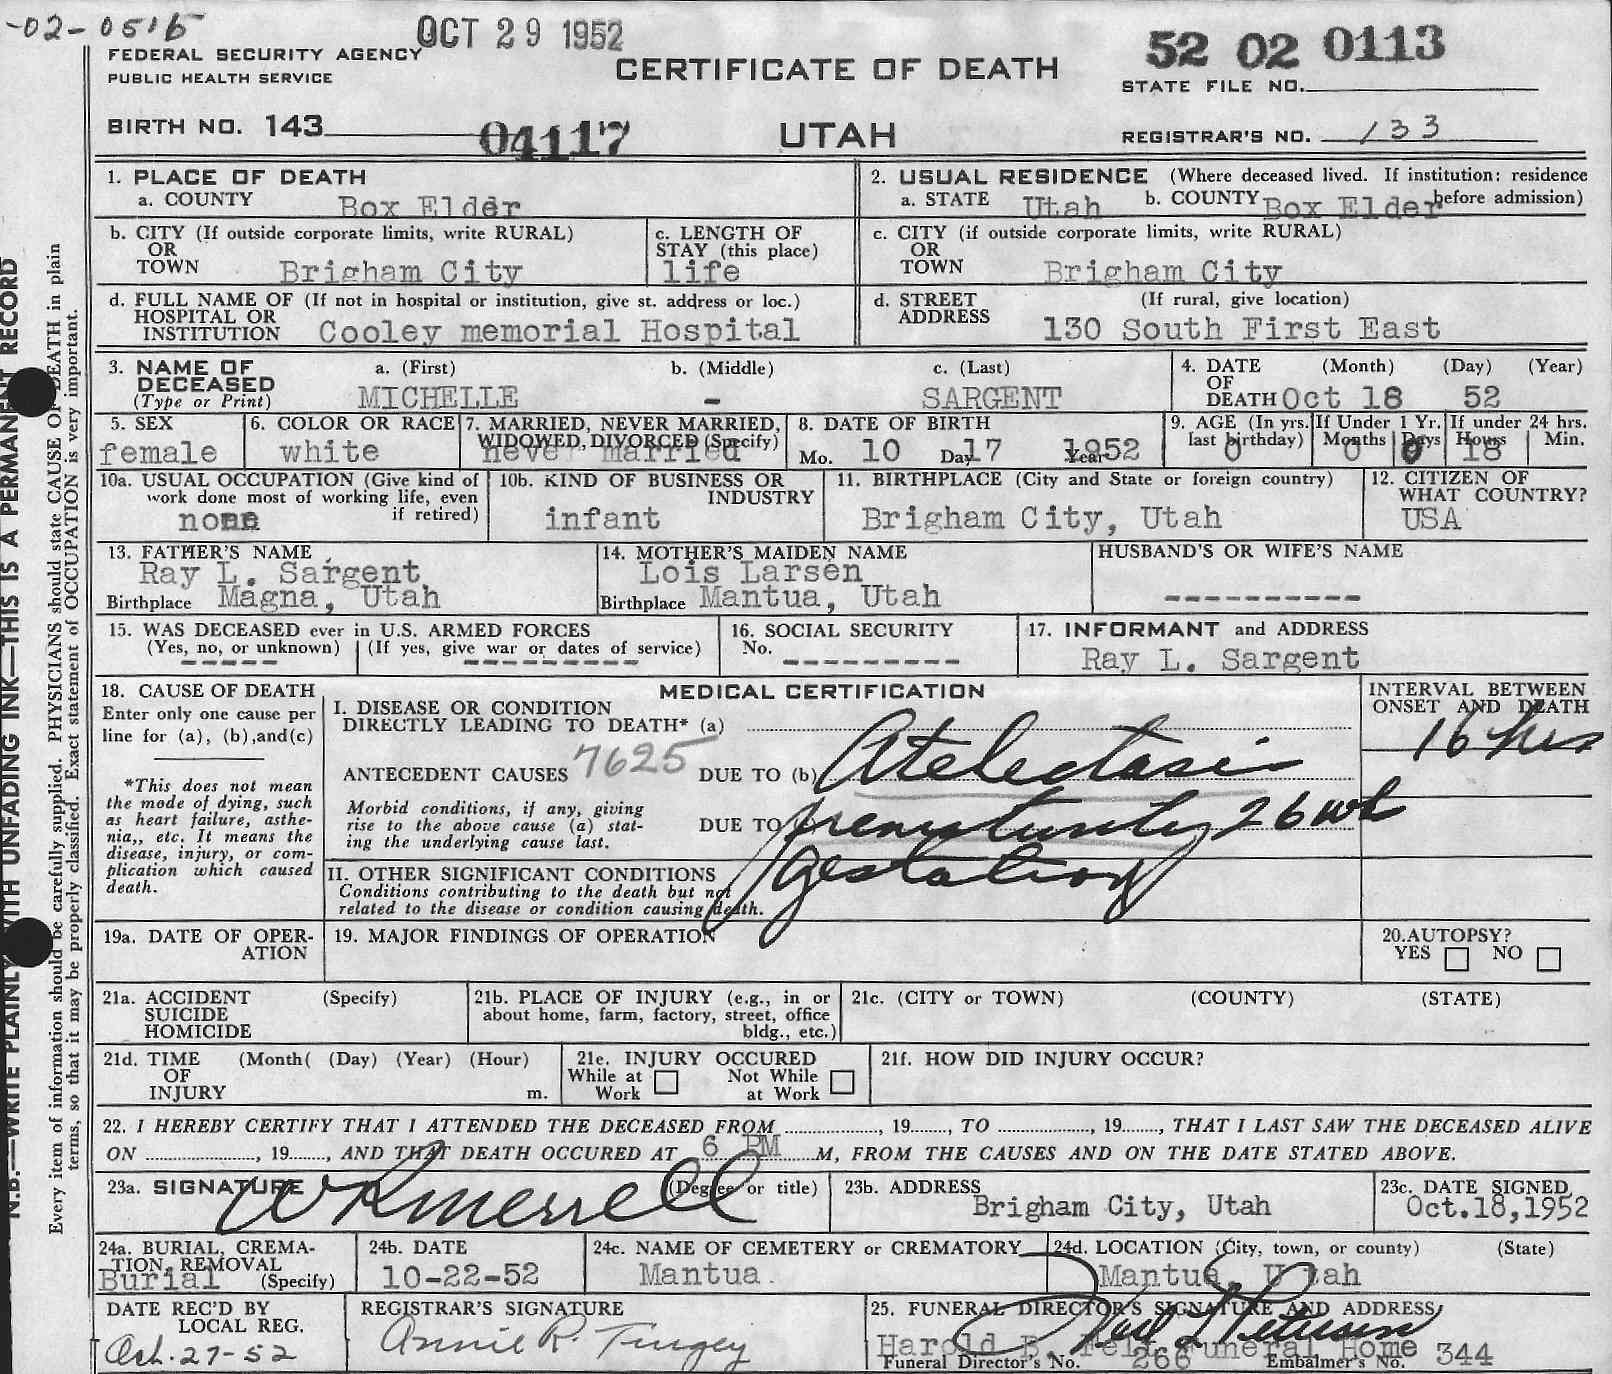 -02-0515
OCT 29 1952
52 02 0113
FEDERAL SECURITY AGENCY
PUBLIC HEALTH SERVICE
CERTIFICATE OF DEATH
STATE FILE NO.
BIRTH NO. 143 04117
UTAH
REGISTRAR'S NO. 133
1. PLACE OF DEATH
a. COUNTY Box Elder
2. USUAL RESIDENCE (Where deceased lived. If institution: residence before admission)
a. STATE Utah b. COUNTY Box Elder
b. CITY (If outside corporate limits, write RURAL)
OR
TOWN Brigham City
c. LENGTH OF
STAY (this place)
life
c. CITY (if outside corporate limits, write RURAL)
OR
TOWN Brigham City
d. FULL NAME OF (If not in hospital or institution, give st. address or loc.)
HOSPITAL OR
INSTITUTION Cooley memorial Hospital
d. STREET (If rural, give location)
ADDRESS 130 South First East
3. NAME OF
DECEASED
(Type or Print)
a. (First) b. (Middle) c. (Last)
MICHELLE - SARGENT
4. DATE (Month) (Day) (Year)
OF
DEATH Oct 18 52
5. SEX
female
6. COLOR OR RACE
white
7. MARRIED, NEVER MARRIED,
WIDOWED, DIVORCED (Specify)
never married
8. DATE OF BIRTH
Mo. 10 Day 17 Year 1952
9. AGE (In yrs.
last birthday)
0
If Under 1 Yr.
Months Days
0 0
If under 24 hrs.
Hours Min.
18
10a. USUAL OCCUPATION (Give kind of
work done most of working life, even
if retired)
none
10b. KIND OF BUSINESS OR
INDUSTRY
infant
11. BIRTHPLACE (City and State or foreign country)
Brigham City, Utah
12. CITIZEN OF
WHAT COUNTRY?
USA
13. FATHER'S NAME
Ray L. Sargent
Birthplace Magna, Utah
14. MOTHER'S MAIDEN NAME
Lois Larsen
Birthplace Mantua, Utah
HUSBAND'S OR WIFE'S NAME
----------
15. WAS DECEASED ever in U.S. ARMED FORCES
(Yes, no, or unknown) (If yes, give war or dates of service)
----- ---------
16. SOCIAL SECURITY
No. ---------
17. INFORMANT and ADDRESS
Ray L. Sargent
18. CAUSE OF DEATH
Enter only one cause per
line for (a), (b),and(c)
*This does not mean
the mode of dying, such
as heart failure, asthe-
nia,, etc. It means the
disease, injury, or com-
plication which caused
death.
MEDICAL CERTIFICATION
I. DISEASE OR CONDITION
DIRECTLY LEADING TO DEATH* (a)
ANTECEDENT CAUSES 7625 DUE TO (b) Atelectasis
Morbid conditions, if any, giving
rise to the above cause (a) stat-
ing the underlying cause last.
DUE TO prematurity 26 wk
gestation
II. OTHER SIGNIFICANT CONDITIONS
Conditions contributing to the death but not
related to the disease or condition causing death.
INTERVAL BETWEEN
ONSET AND DEATH
16 hrs
19a. DATE OF OPER-
ATION
19. MAJOR FINDINGS OF OPERATION
20.AUTOPSY?
YES NO
21a. ACCIDENT (Specify)
SUICIDE
HOMICIDE
21b. PLACE OF INJURY (e.g., in or
about home, farm, factory, street, office
bldg., etc.)
21c. (CITY or TOWN) (COUNTY) (STATE)
21d. TIME (Month( (Day) (Year) (Hour)
OF
INJURY m.
21e. INJURY OCCURED
While at Work Not While at Work
21f. HOW DID INJURY OCCUR?
22. I HEREBY CERTIFY THAT I ATTENDED THE DECEASED FROM ..............., 19......, TO ..............., 19......, THAT I LAST SAW THE DECEASED ALIVE
ON ................, 19......, AND THAT DEATH OCCURED AT 6 PM M, FROM THE CAUSES AND ON THE DATE STATED ABOVE.
23a. SIGNATURE (Degree or title)
W R Merrell
23b. ADDRESS
Brigham City, Utah
23c. DATE SIGNED
Oct.18,1952
24a. BURIAL, CREMA-
TION, REMOVAL
Burial (Specify)
24b. DATE
10-22-52
24c. NAME OF CEMETERY or CREMATORY
Mantua.
24d. LOCATION (City, town, or county) (State)
Mantua, U tah
DATE REC'D BY
LOCAL REG.
Oct. 27-52
REGISTRAR'S SIGNATURE
Annie R. Tingey
25. FUNERAL DIRECTOR'S SIGNATURE AND ADDRESS
Harold B. Felt Funeral Home
Funeral Director's No. 266 Embalmer's No. 344
N.B.—WRITE PLAINLY WITH UNFADING INK—THIS IS A PERMANENT RECORD
Every item of information should be carefully supplied. PHYSICIANS should state CAUSE OF DEATH in plain
terms, so that it may be properly classified. Exact statement of OCCUPATION is very important.